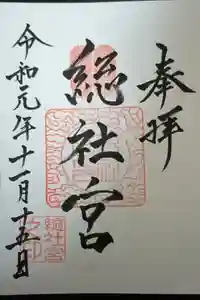 奉拝
総社宮
令和元年十一月十五日